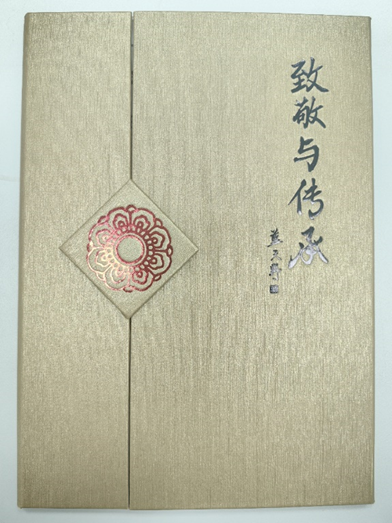 致敬与传承